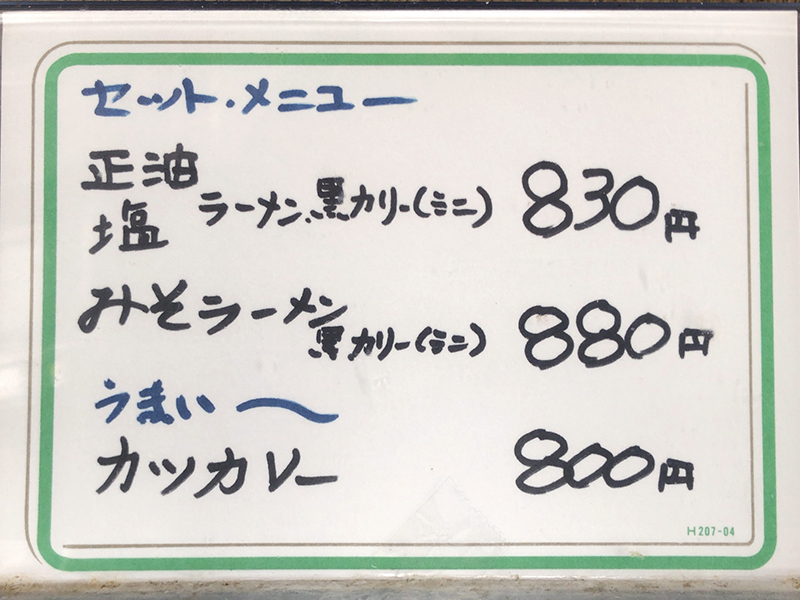 セット・メニュー
正油
塩 ラーメン、黒カリー(ミニ) 830円
みそラーメン
黒カリー(ミニ) 880円
うまい〜
カツカレー 800円
H207-04